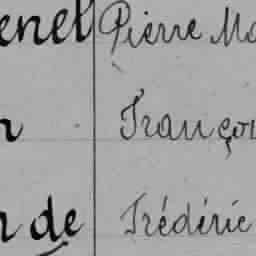 enel Pierre Ma
n Françoi
n de Frédéric